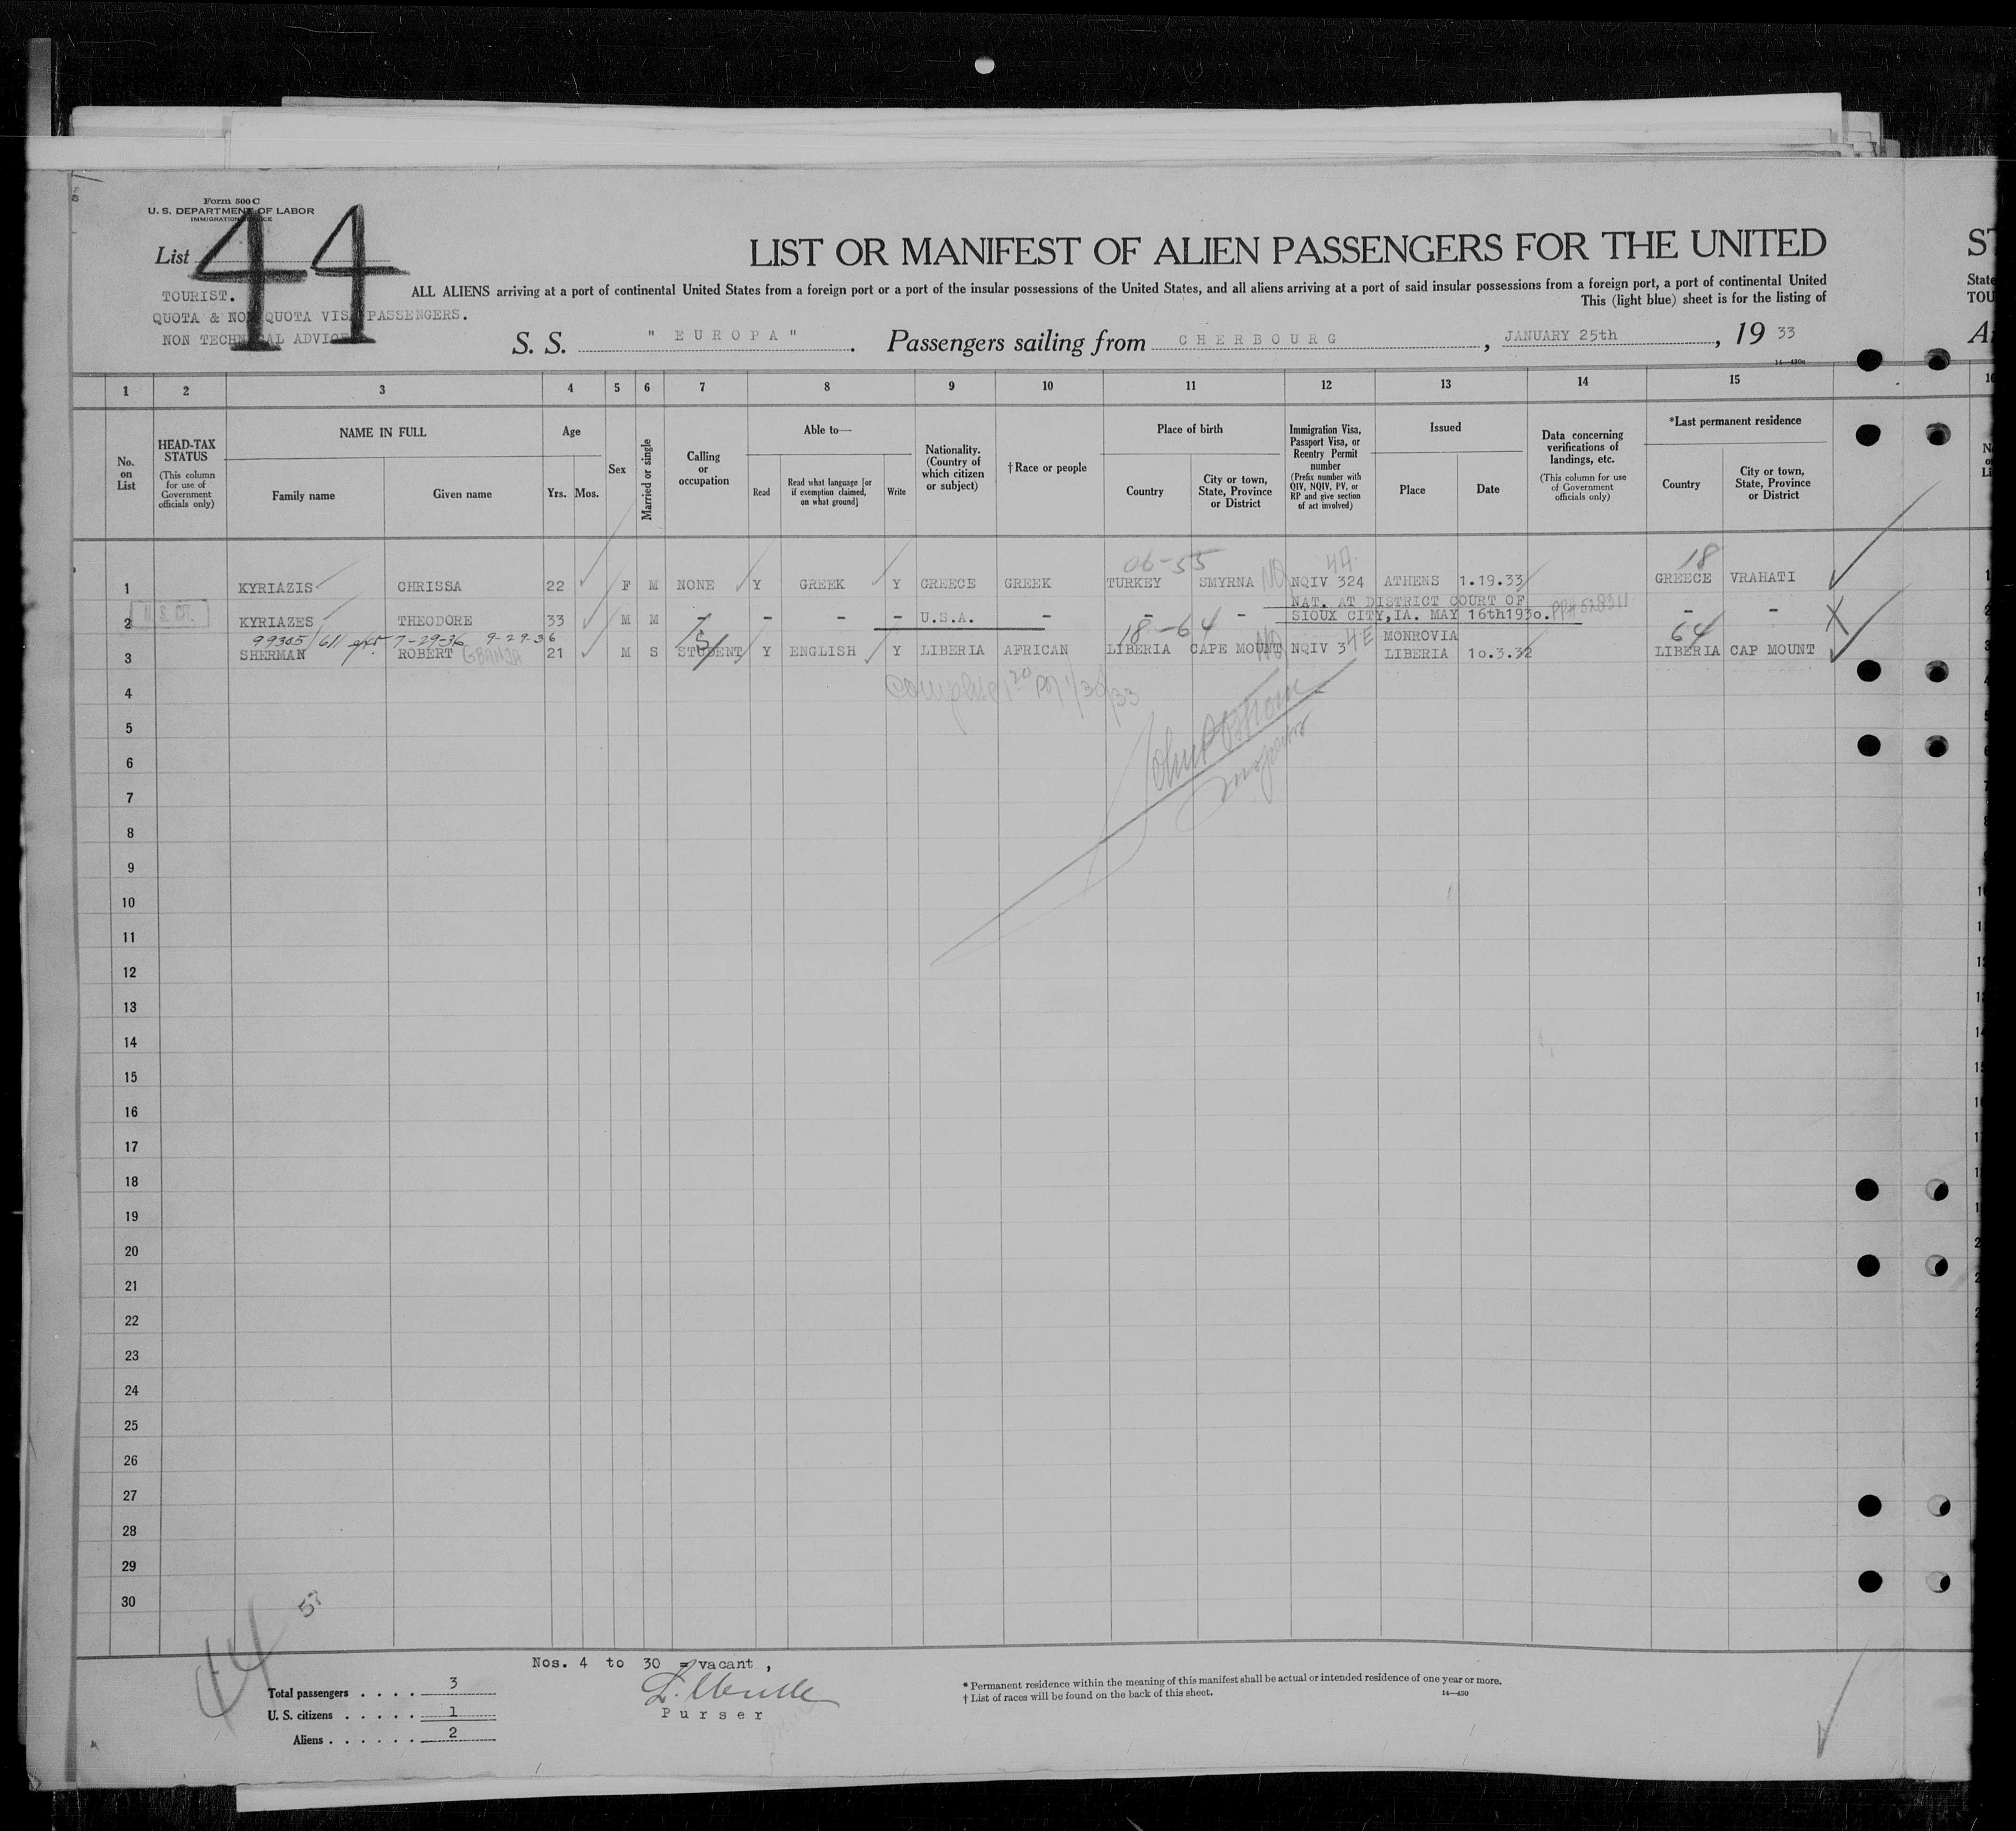 Form 500 C
U. S. DEPARTMENT OF LABOR
IMMIGRATION
List 44
TOURIST.
QUOTA & NON QUOTA VISA PASSENGERS.
NON TECHNICAL ADVICE
LIST OR MANIFEST OF ALIEN PASSENGERS FOR THE UNITED
ALL ALIENS arriving at a port of continental United States from a foreign port or a port of the insular possessions of the United States, and all aliens arriving at a port of said insular possessions from a foreign port, a port of continental United
This (light blue) sheet is for the listing of
State
TOU
S. S. " EUROPA ". Passengers sailing from CHERBOURG, JANUARY 25th, 19 33
14—430a
1 2 3 4 5 6 7 8 9 10 11 12 13 14 15
No. on List
HEAD-TAX STATUS (This column for use of Government officials only)
NAME IN FULL
Family name Given name
Age
Yrs. Mos.
Sex
Married or single
Calling or occupation
Able to—
Read Read what language [or if exemption claimed, on what ground] Write
Nationality. (Country of which citizen or subject)
†Race or people
Place of birth
Country City or town, State, Province or District
Immigration Visa, Passport Visa, or Reentry Permit number (Prefix number with QIV, NQIV, PV, or RP and give section of act involved)
Issued
Place Date
Data concerning verifications of landings, etc. (This column for use of Government officials only)
*Last permanent residence
Country City or town, State, Province or District
06-55 4A 18
1 KYRIAZIS CHRISSA 22 F M NONE Y GREEK Y GREECE GREEK TURKEY SMYRNA NQ NQIV 324 ATHENS 1.19.33 GREECE VRAHATI
NAT. AT DISTRICT COURT OF
2 U.S. CIT. KYRIAZES THEODORE 33 M M - - - - U.S.A. - - - SIOUX CITY,IA. MAY 16th1930. PP# 528311 - -
99305/611 ext. 7-29-36 9-29-36 18-64 4E MONROVIA 64
3 SHERMAN ROBERT GBANJA 21 M S STUDENT Y ENGLISH Y LIBERIA AFRICAN LIBERIA CAPE MOUNT NQ NQIV 3 LIBERIA 10.3.32 LIBERIA CAP MOUNT
4 Complete 1 20 PM 1/30/33
5
6 Inspector
7
8
9
10
11
12
13
14
15
16
17
18
19
20
21
22
23
24
25
26
27
28
29
30
44
Nos. 4 to 30 = vacant ,
Total passengers . . . . 3
U. S. citizens . . . . . 1
Aliens . . . . . . 2
Purser
* Permanent residence within the meaning of this manifest shall be actual or intended residence of one year or more.
† List of races will be found on the back of this sheet.
14—430